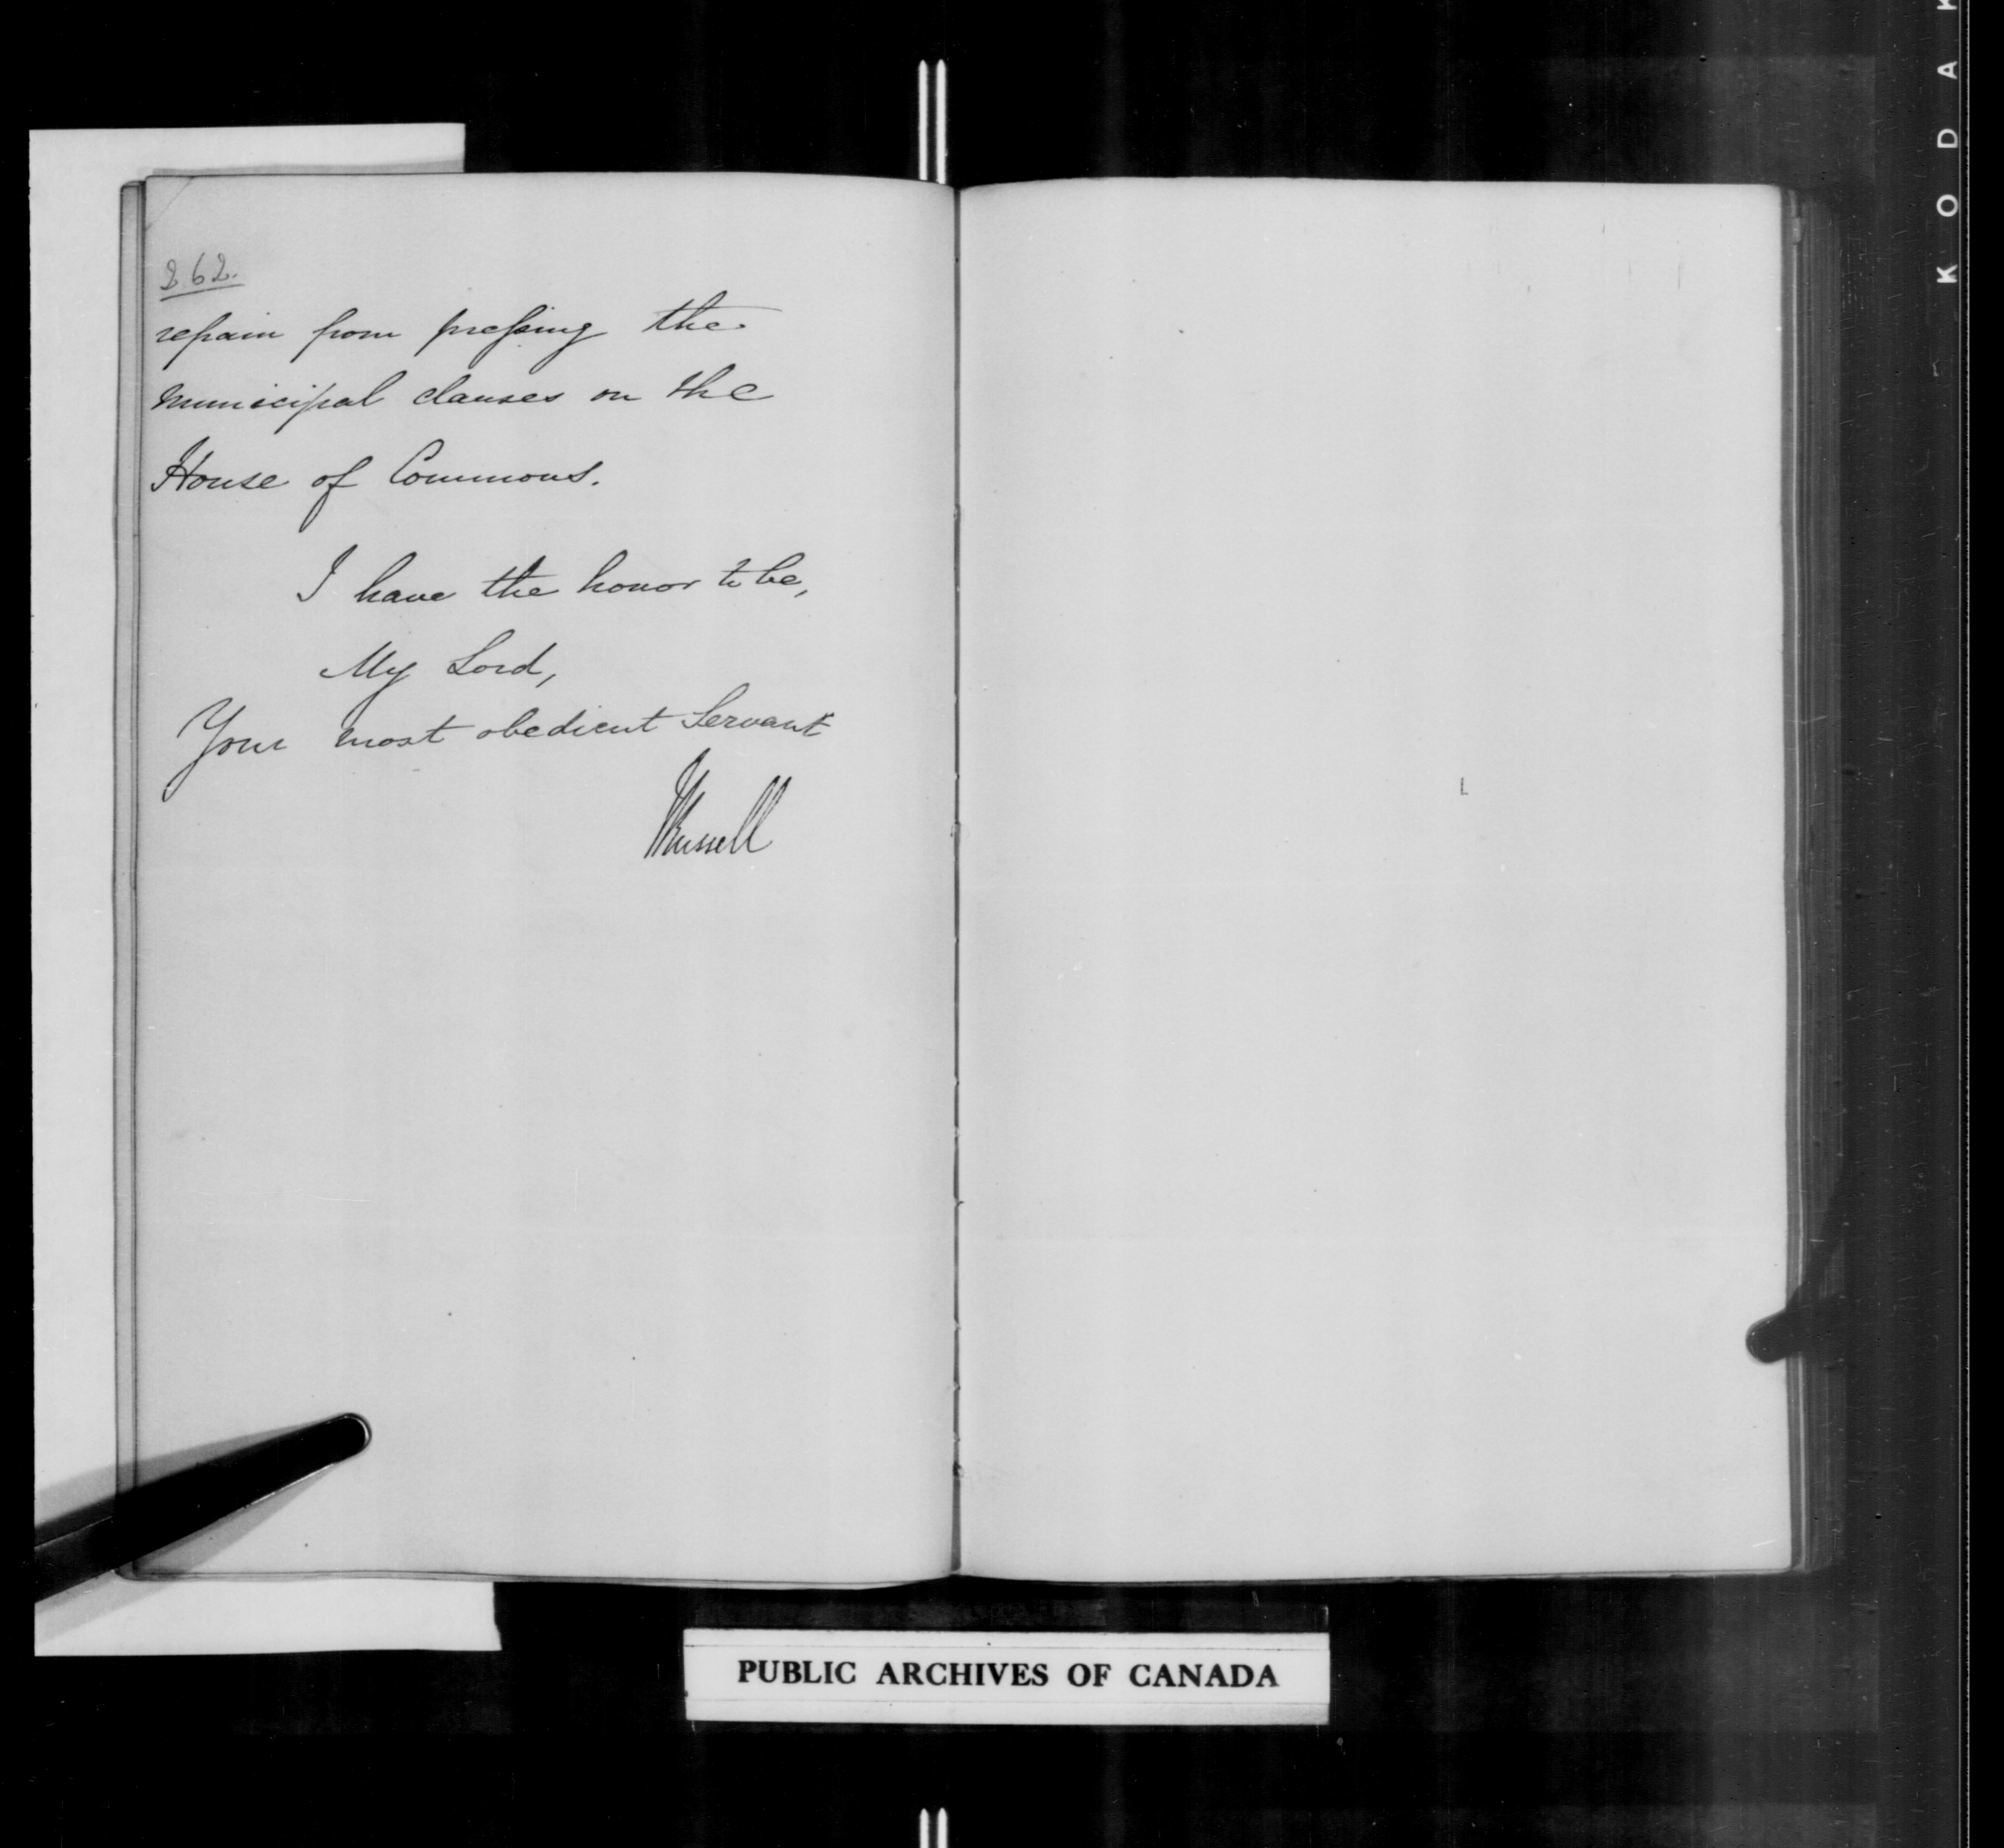 262.
refrain from pressing the
municipal clauses on the
House of Commons.
I have the honor to be,
My Lord,
Your most obedient Servant
JRussell
PUBLIC ARCHIVES OF CANADA
KODAK